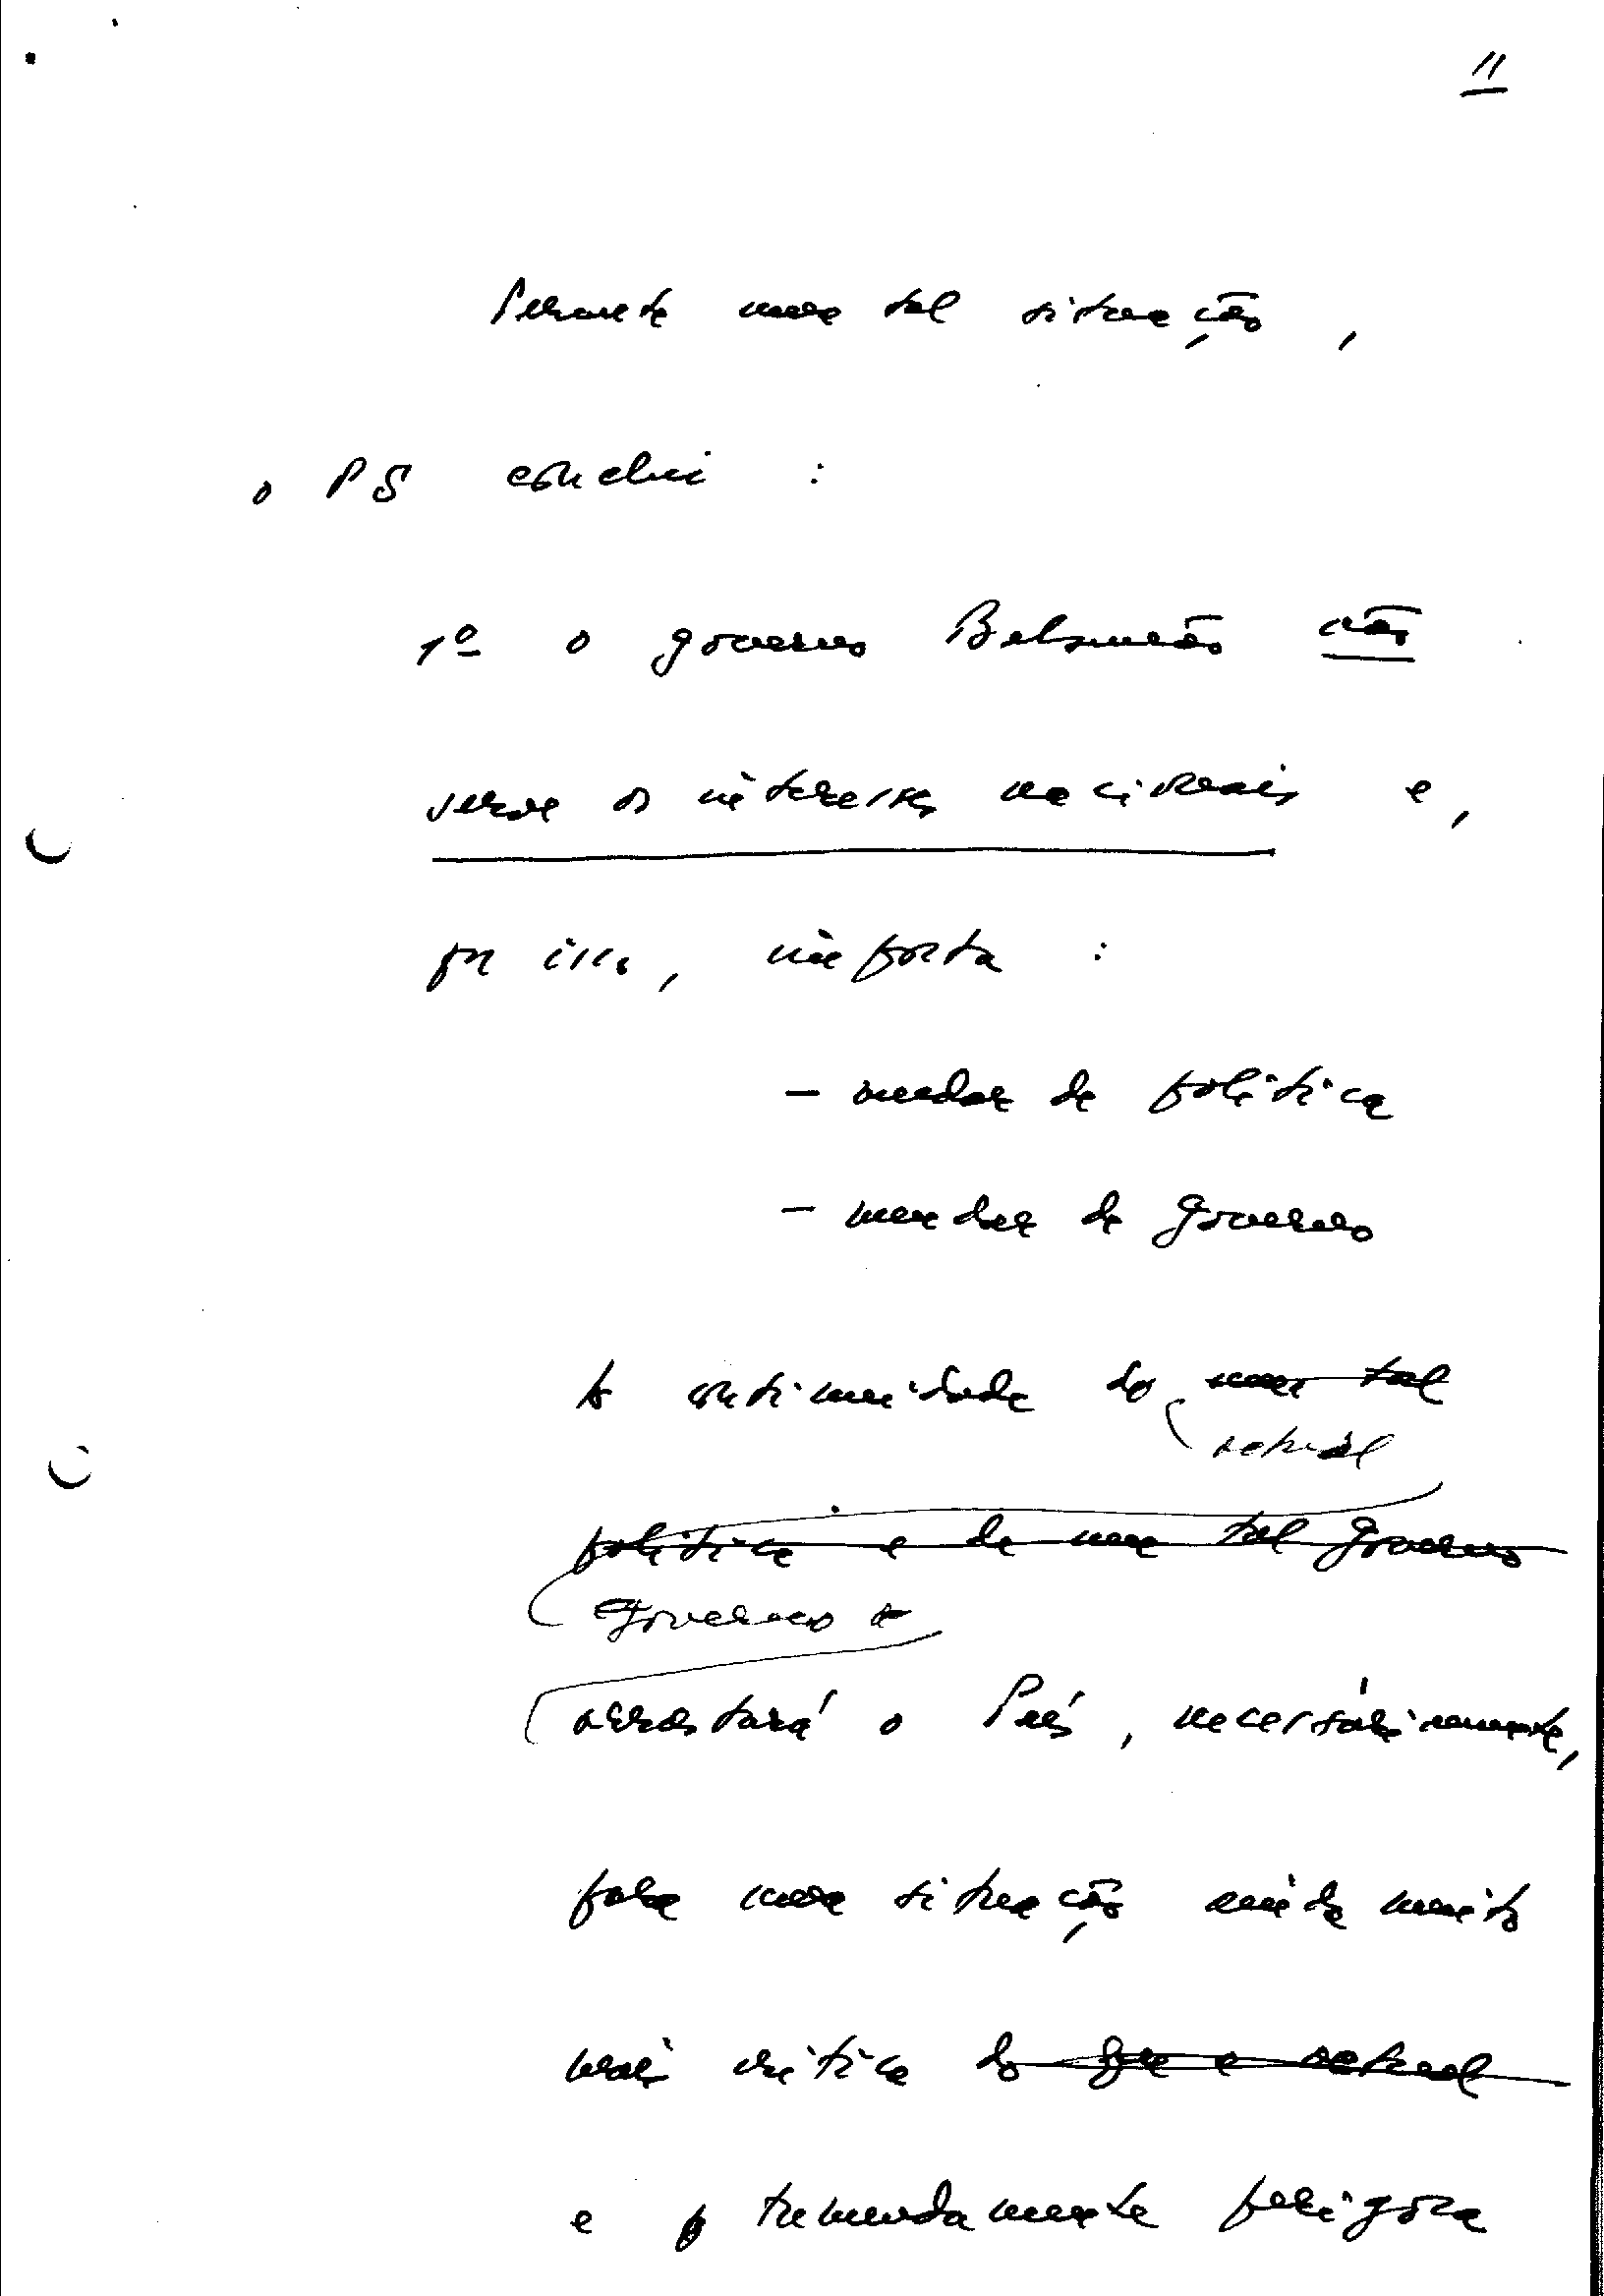 11
Perante uma tal situação,
o PS conclui :
1º o governo Balsemão não
serve os interesses nacionais e,
por isso, importa :
- mudar de política
- mudar de governo
A continuidade do uma tal
actual
política e de um tal governo
Governo
arrastará o País, necessáriamente,
para uma situação ainda muito
mais crítica do que a actual
e tremendamente perigosa